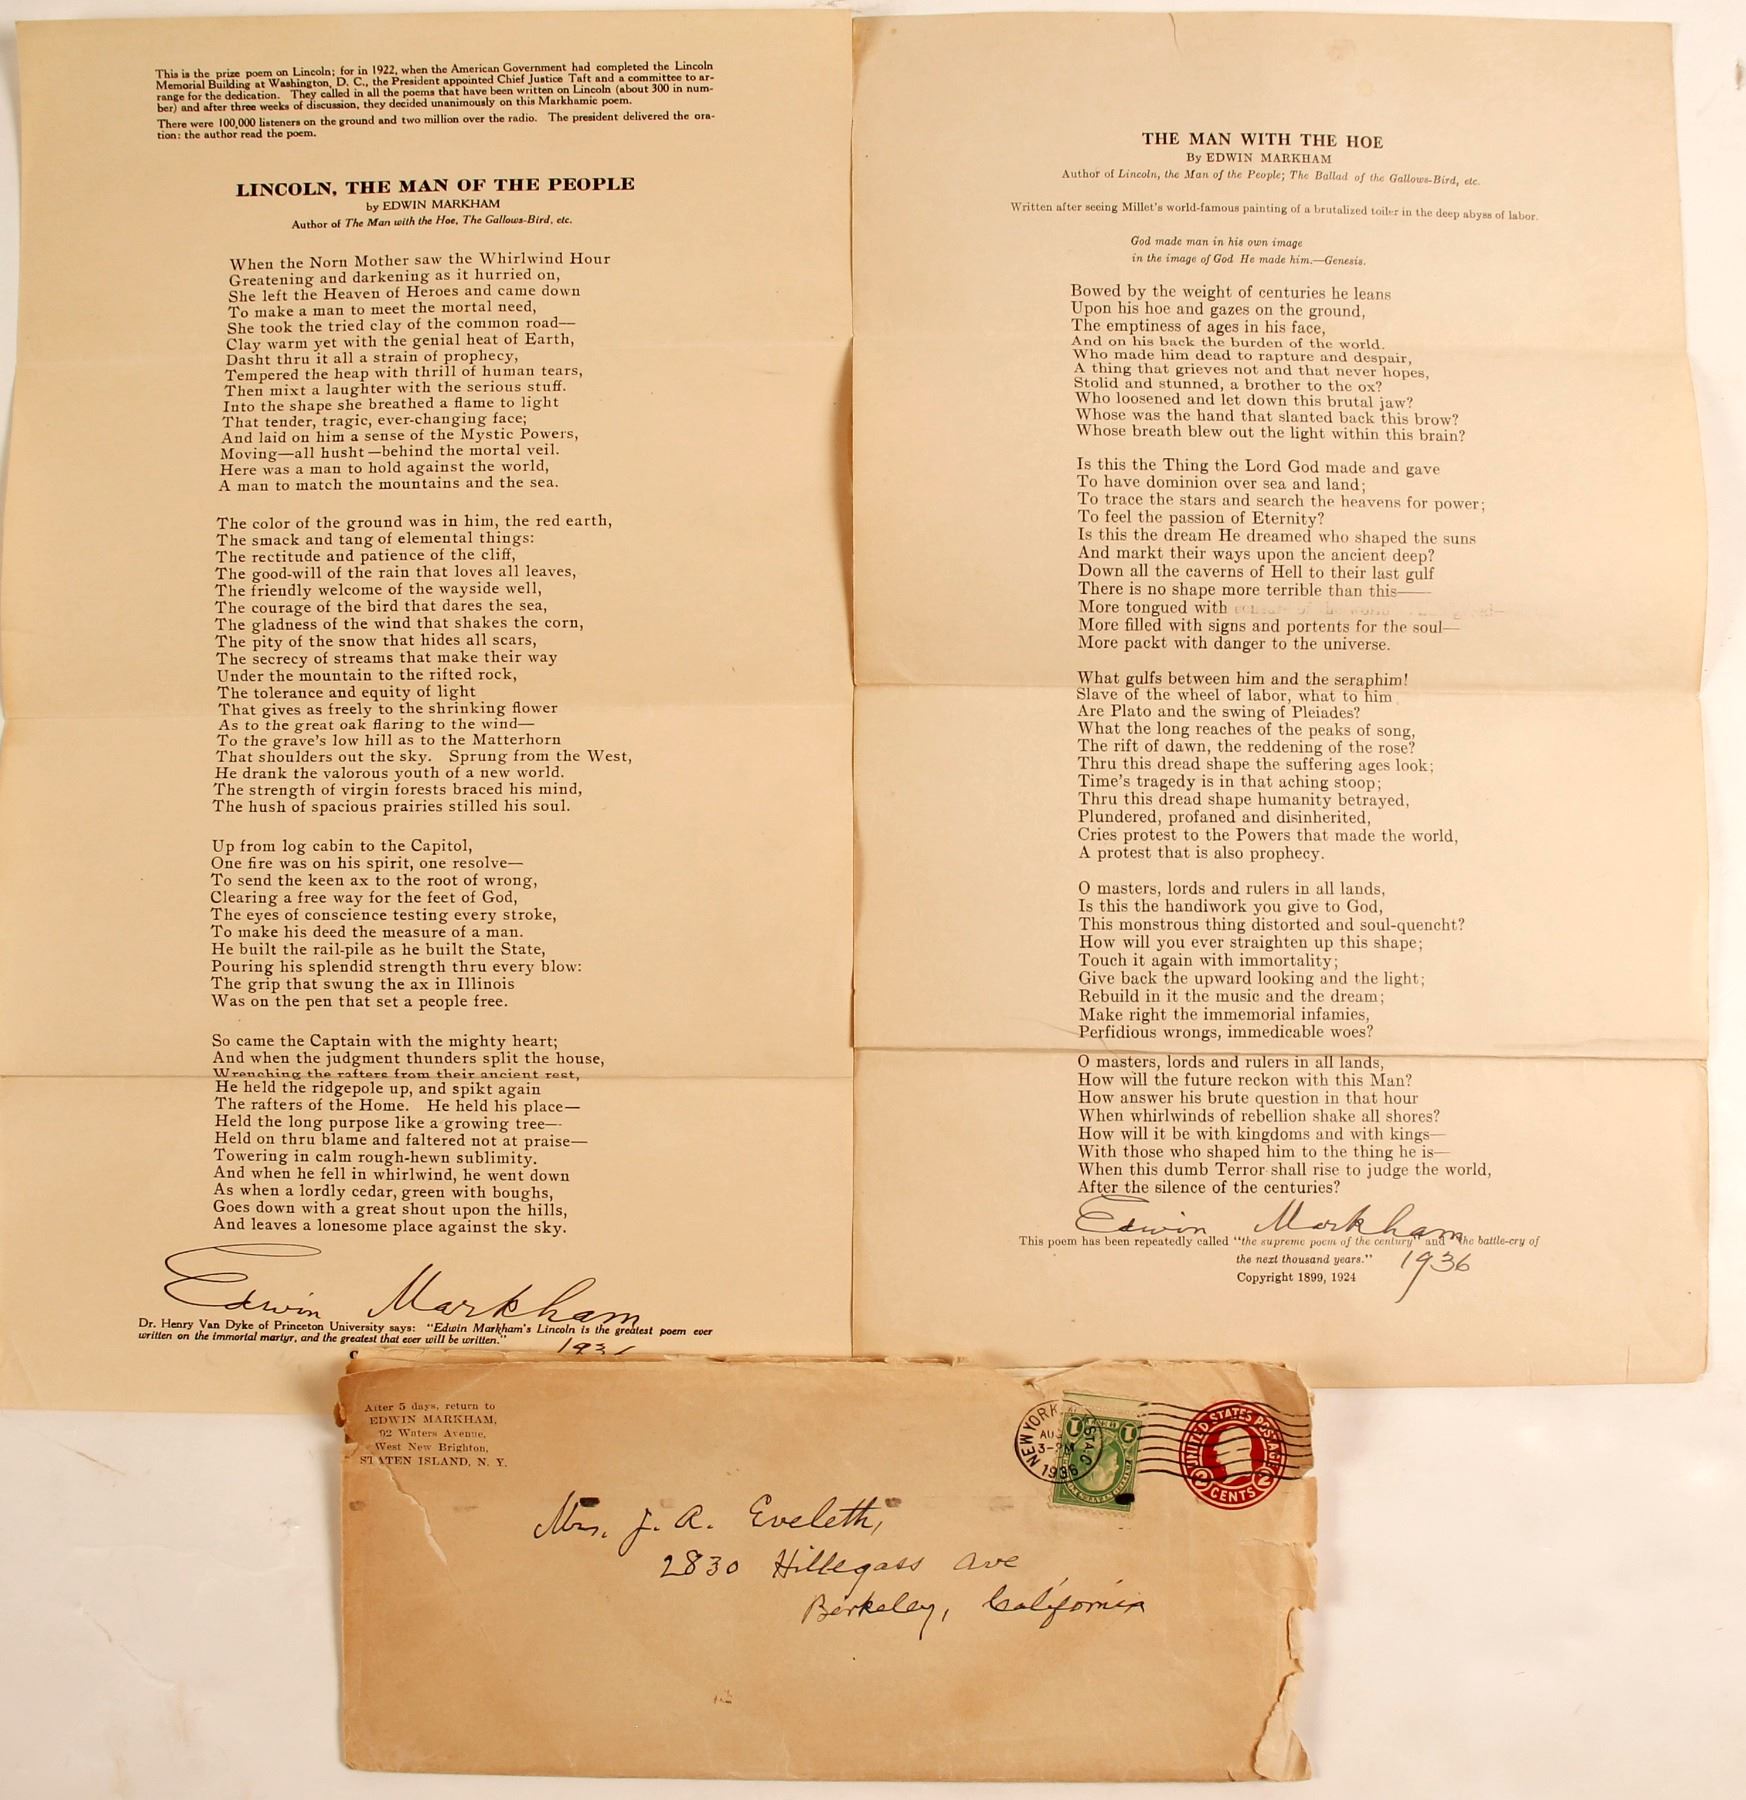 This is the prize poem on Lincoln; for in 1922, when the American Government had completed the Lincoln
Memorial Building at Washington, D. C., the President appointed Chief Justice Taft and a committee to ar-
range for the dedication. They called in all the poems that have been written on Lincoln (about 300 in num-
ber) and after three weeks of discussion, they decided unanimously on this Markhamic poem.
There were 100,000 listeners on the ground and two million over the radio. The president delivered the ora-
tion: the author read the poem.
LINCOLN, THE MAN OF THE PEOPLE
by EDWIN MARKHAM
Author of The Man with the Hoe, The Gallows-Bird, etc.
When the Norn Mother saw the Whirlwind Hour
Greatening and darkening as it hurried on,
She left the Heaven of Heroes and came down
To make a man to meet the mortal need,
She took the tried clay of the common road—
Clay warm yet with the genial heat of Earth,
Dasht thru it all a strain of prophecy,
Tempered the heap with thrill of human tears,
Then mixt a laughter with the serious stuff.
Into the shape she breathed a flame to light
That tender, tragic, ever-changing face;
And laid on him a sense of the Mystic Powers,
Moving—all husht—behind the mortal veil.
Here was a man to hold against the world,
A man to match the mountains and the sea.
The color of the ground was in him, the red earth,
The smack and tang of elemental things:
The rectitude and patience of the cliff,
The good-will of the rain that loves all leaves,
The friendly welcome of the wayside well,
The courage of the bird that dares the sea,
The gladness of the wind that shakes the corn,
The pity of the snow that hides all scars,
The secrecy of streams that make their way
Under the mountain to the rifted rock,
The tolerance and equity of light
That gives as freely to the shrinking flower
As to the great oak flaring to the wind—
To the grave's low hill as to the Matterhorn
That shoulders out the sky. Sprung from the West,
He drank the valorous youth of a new world.
The strength of virgin forests braced his mind,
The hush of spacious prairies stilled his soul.
Up from log cabin to the Capitol,
One fire was on his spirit, one resolve—
To send the keen ax to the root of wrong,
Clearing a free way for the feet of God,
The eyes of conscience testing every stroke,
To make his deed the measure of a man.
He built the rail-pile as he built the State,
Pouring his splendid strength thru every blow:
The grip that swung the ax in Illinois
Was on the pen that set a people free.
So came the Captain with the mighty heart;
And when the judgment thunders split the house,
Wrenching the rafters from their ancient rest,
He held the ridgepole up, and spikt again
The rafters of the Home. He held his place—
Held the long purpose like a growing tree—
Held on thru blame and faltered not at praise—
Towering in calm rough-hewn sublimity.
And when he fell in whirlwind, he went down
As when a lordly cedar, green with boughs,
Goes down with a great shout upon the hills,
And leaves a lonesome place against the sky.
Edwin Markham
Dr. Henry Van Dyke of Princeton University says: "Edwin Markham's Lincoln is the greatest poem ever
written on the immortal martyr, and the greatest that ever will be written."
THE MAN WITH THE HOE
By EDWIN MARKHAM
Author of Lincoln, the Man of the People; The Ballad of the Gallows-Bird, etc.
Written after seeing Millet's world-famous painting of a brutalized toiler in the deep abyss of labor.
God made man in his own image
in the image of God He made him.—Genesis.
Bowed by the weight of centuries he leans
Upon his hoe and gazes on the ground,
The emptiness of ages in his face,
And on his back the burden of the world.
Who made him dead to rapture and despair,
A thing that grieves not and that never hopes,
Stolid and stunned, a brother to the ox?
Who loosened and let down this brutal jaw?
Whose was the hand that slanted back this brow?
Whose breath blew out the light within this brain?
Is this the Thing the Lord God made and gave
To have dominion over sea and land;
To trace the stars and search the heavens for power;
To feel the passion of Eternity?
Is this the dream He dreamed who shaped the suns
And markt their ways upon the ancient deep?
Down all the caverns of Hell to their last gulf
There is no shape more terrible than this—
More tongued with
More filled with signs and portents for the soul—
More packt with danger to the universe.
What gulfs between him and the seraphim!
Slave of the wheel of labor, what to him
Are Plato and the swing of Pleiades?
What the long reaches of the peaks of song,
The rift of dawn, the reddening of the rose?
Thru this dread shape the suffering ages look;
Time's tragedy is in that aching stoop;
Thru this dread shape humanity betrayed,
Plundered, profaned and disinherited,
Cries protest to the Powers that made the world,
A protest that is also prophecy.
O masters, lords and rulers in all lands,
Is this the handiwork you give to God,
This monstrous thing distorted and soul-quencht?
How will you ever straighten up this shape;
Touch it again with immortality;
Give back the upward looking and the light;
Rebuild in it the music and the dream;
Make right the immemorial infamies,
Perfidious wrongs, immedicable woes?
O masters, lords and rulers in all lands,
How will the future reckon with this Man?
How answer his brute question in that hour
When whirlwinds of rebellion shake all shores?
How will it be with kingdoms and with kings—
With those who shaped him to the thing he is—
When this dumb Terror shall rise to judge the world,
After the silence of the centuries?
Edwin Markham
This poem has been repeatedly called "the supreme poem of the century" and "the battle-cry of
the next thousand years."
1936
Copyright 1899, 1924
After 5 days, return to
EDWIN MARKHAM,
92 Waters Avenue,
West New Brighton,
STATEN ISLAND, N. Y.
NEW YORK
AUG
3-PM
1936
1 1
UNITED STATES POSTAGE
2 CENTS 2
Mrs. J. A. Eveleth,
2830 Hillegass Ave
Berkeley, California